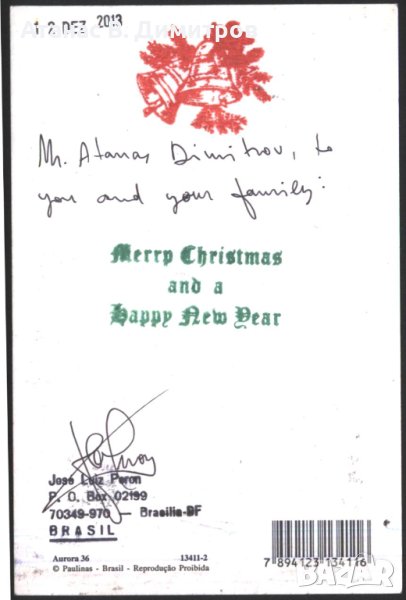 Атанас В. Димитров
1 2 DEZ 2013
Mr. Atanas Dimitrov, to
you and your family:
Merry Christmas
and a
Happy New Year
Jose Luiz Peron
P. O. Box 02199
70349-970 — Brasilia-DF
BRASIL
Aurora 36 13411-2
© Paulinas - Brasil - Reprodução Proibida
7 894123 134116
BAZAR